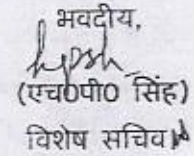 भवदीय,
(एच0पी0 सिंह)
विशेष सचिव